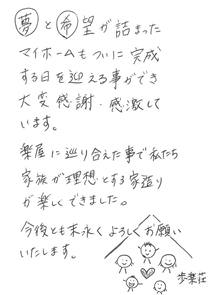 夢と希望が詰まった
マイホームもついに完成
する日を迎える事ができ
大変感謝・感激して
います。
楽屋に巡り合えた事で私たち
家族が理想とする家造り
が楽しくできました。
今後とも末永くよろしくお願い
いたします。
歩楽荘